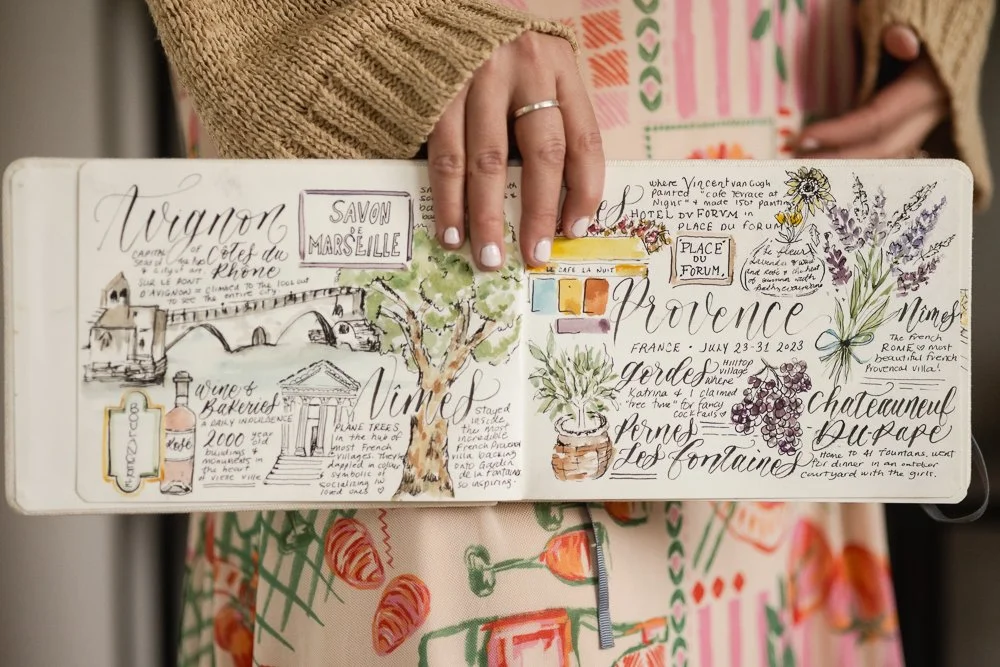 Avignon
CAPITAL of
Côtes du
Rhône
& city of art.
SUR LE PONT
D'AVIGNON & climbed to the look out
to see the entire city
SAVON
DE
MARSEILLE
BOULANGERIE
Rosé
wine &
Bakeries
A DAILY INDULGENCE
2000 year
old
buildings &
monuments in
the heart
of
ville
Nîmes
PLANE TREES,
in the hub of
most French
villages. They're
dappled in colour &
symbolic of
socializing w
loved ones ♡
stayed
inside
the most
incredible
French Provencal
villa backing
onto Garden
de la Fontaine
so inspiring.
where Vincent van Gogh
painted "cafe Terrace at
Night" & made 150+ paintings
HOTEL DU FORUM in
PLACE DU FORUM
PLACE
DU
FORUM.
LE CAFE LA NUIT
Provence
FRANCE • JULY 23-31 2023
Nîmes
The French
ROME & most
beautiful French
Provencal villa!
gordes Hilltop
village
where
Katrina & I claimed
"tree time" for fancy
cocktails
Pernes
Les fontaines
Home to 41 fountains, went
for dinner in an outdoor
courtyard with the girls.
Chateauneuf
Du-Pape